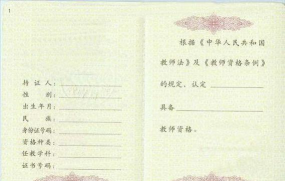 1
持证人：
性别：
出生年月：
民族：
身份证号码：
资格种类：
任教学科：
证书号码：
根据《中华人民共和国
教师法》及《教师资格条例》
的规定，认定
具备
教师资格。